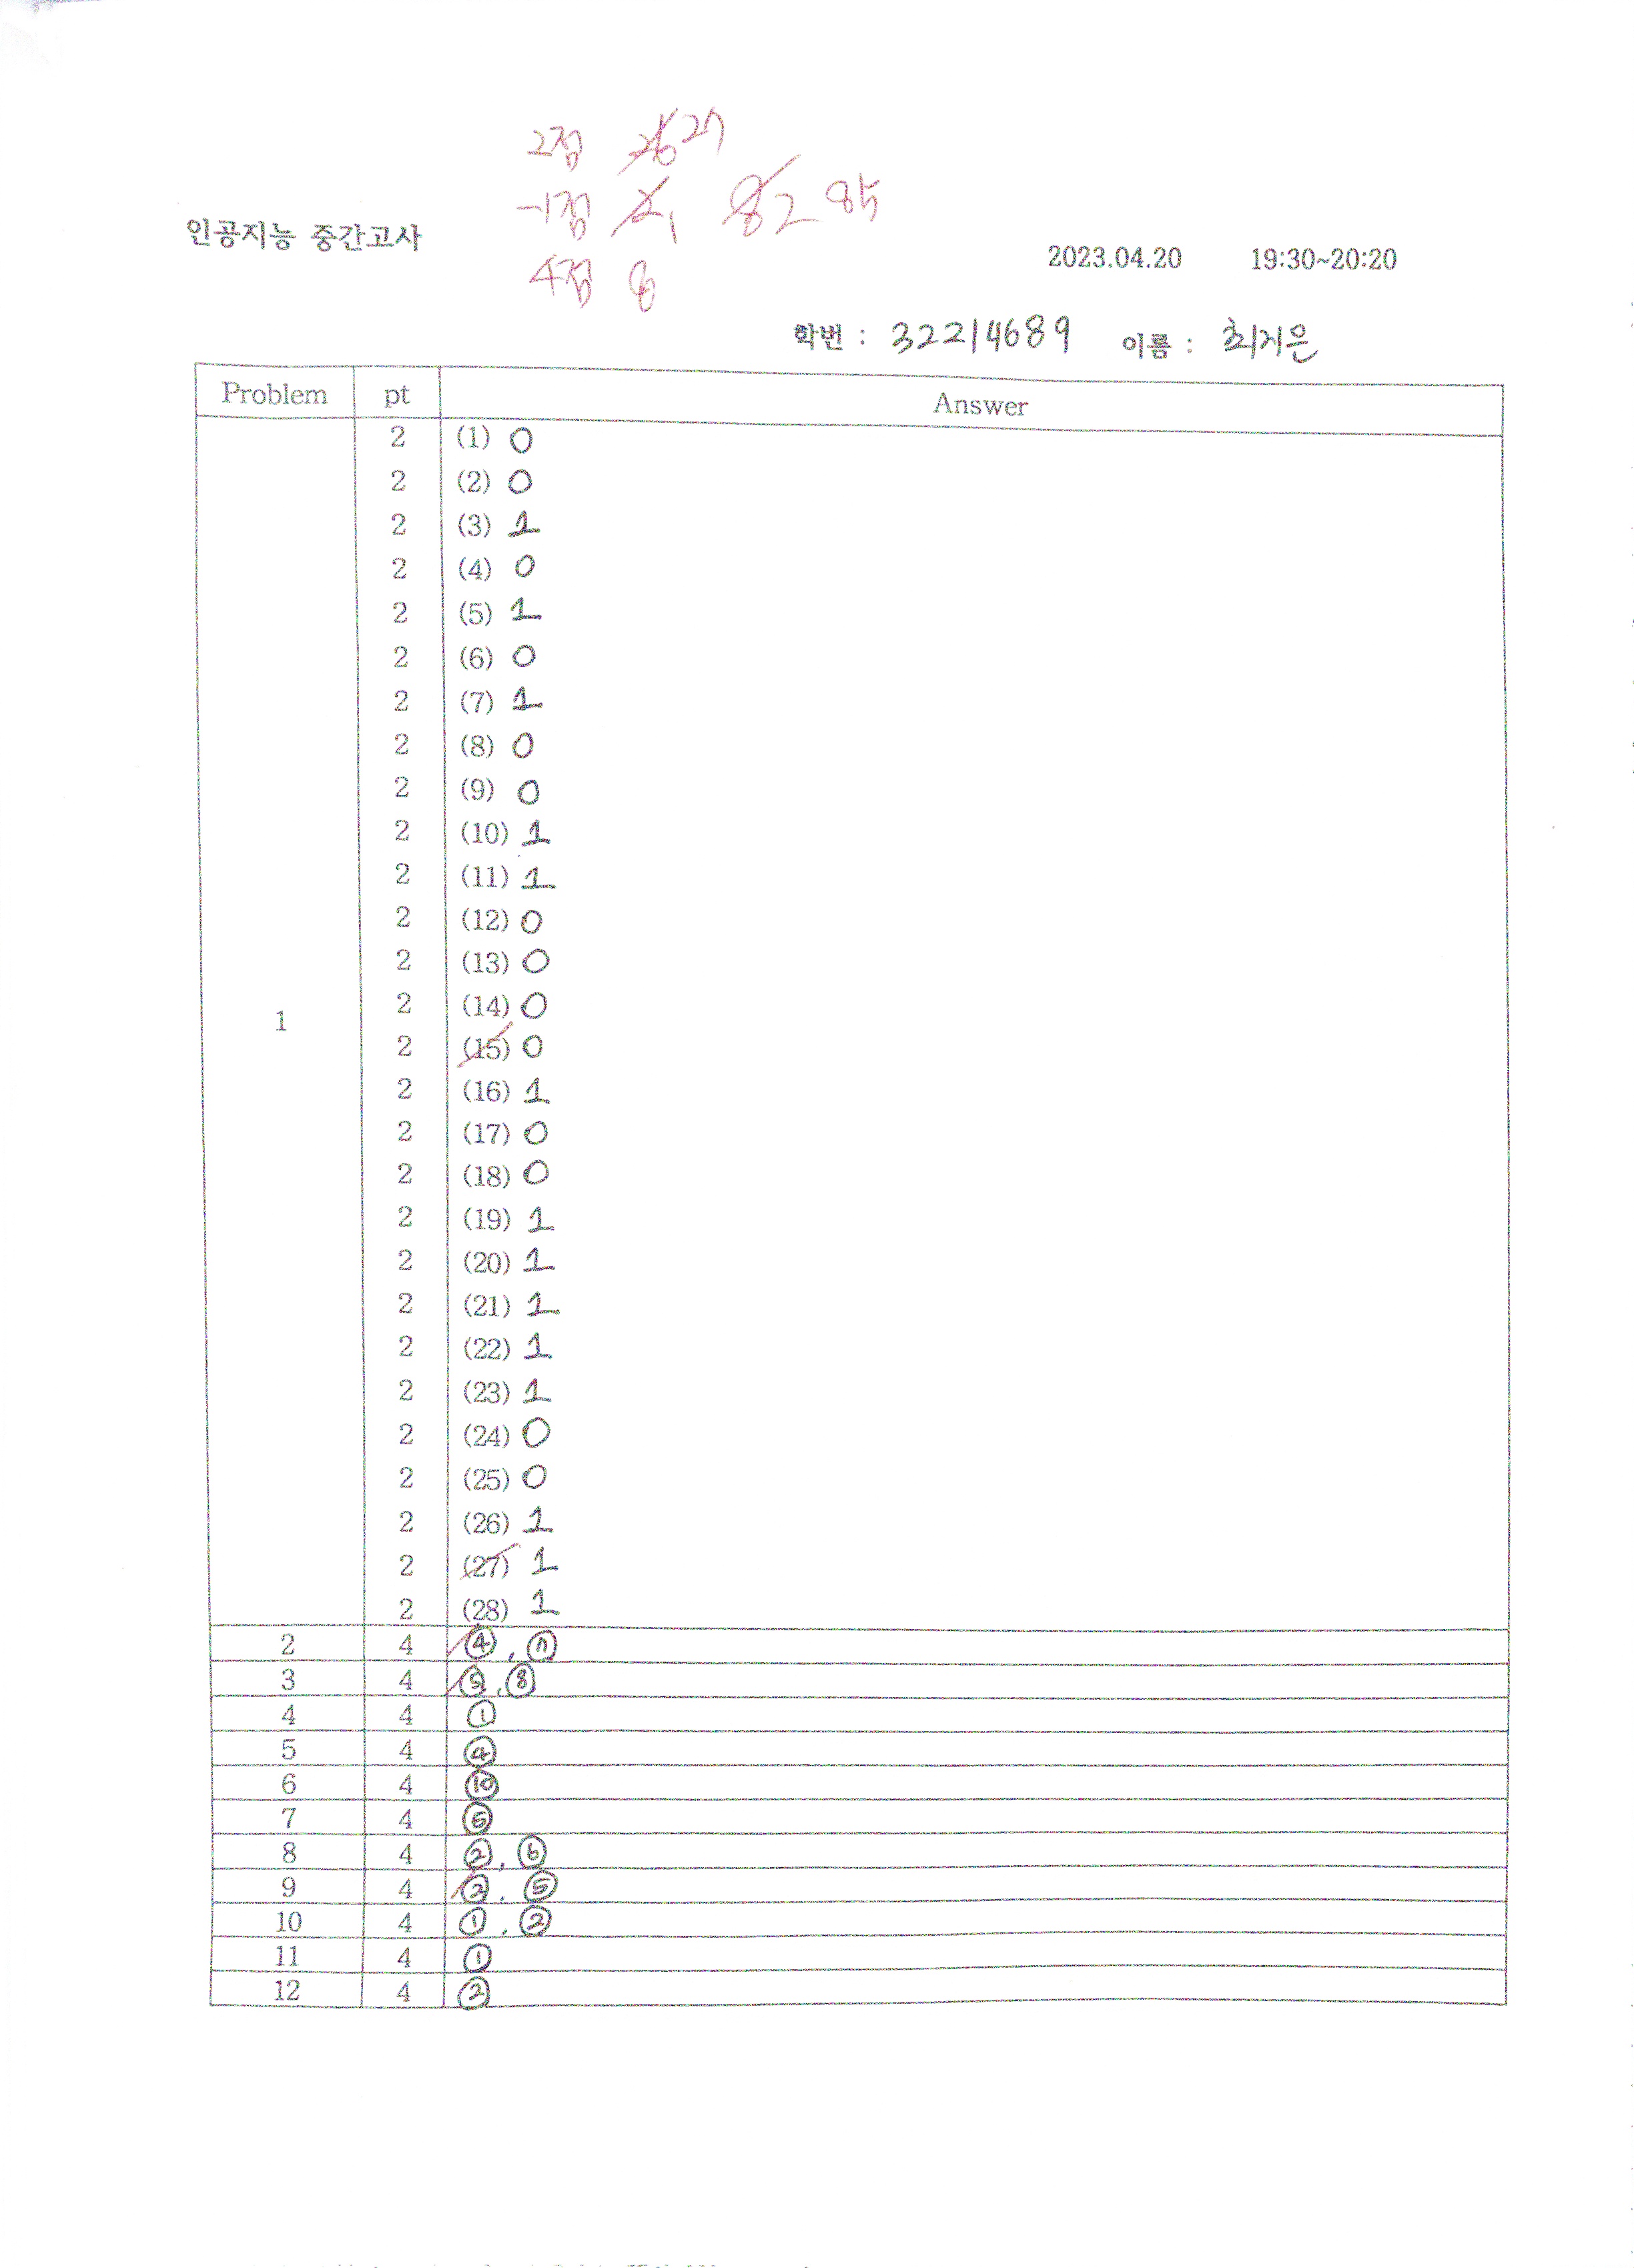 2점 26 27
-1점 2 1 82 85
인공지능 중간고사
4점 8
2023.04.20 19:30~20:20
학번 : 32214689 이름 : 최지은
Problem pt Answer
2 (1) 0
2 (2) 0
2 (3) 1
2 (4) 0
2 (5) 1
2 (6) 0
2 (7) 1
2 (8) 0
2 (9) 0
2 (10) 1
2 (11) 1
2 (12) 0
2 (13) 0
2 (14) 0
1
2 (15) 0
2 (16) 1
2 (17) 0
2 (18) 0
2 (19) 1
2 (20) 1
2 (21) 1
2 (22) 1
2 (23) 1
2 (24) 0
2 (25) 0
2 (26) 1
2 (27) 1
2 (28) 1
2 4 ④, ⑪
3 4 , ⑧
4 4 ①
5 4 ④
6 4 ⑩
7 4 ⑥
8 4 ②, ⑥
9 4 ②, ⑤
10 4 ①, ②
11 4 ①
12 4 ②